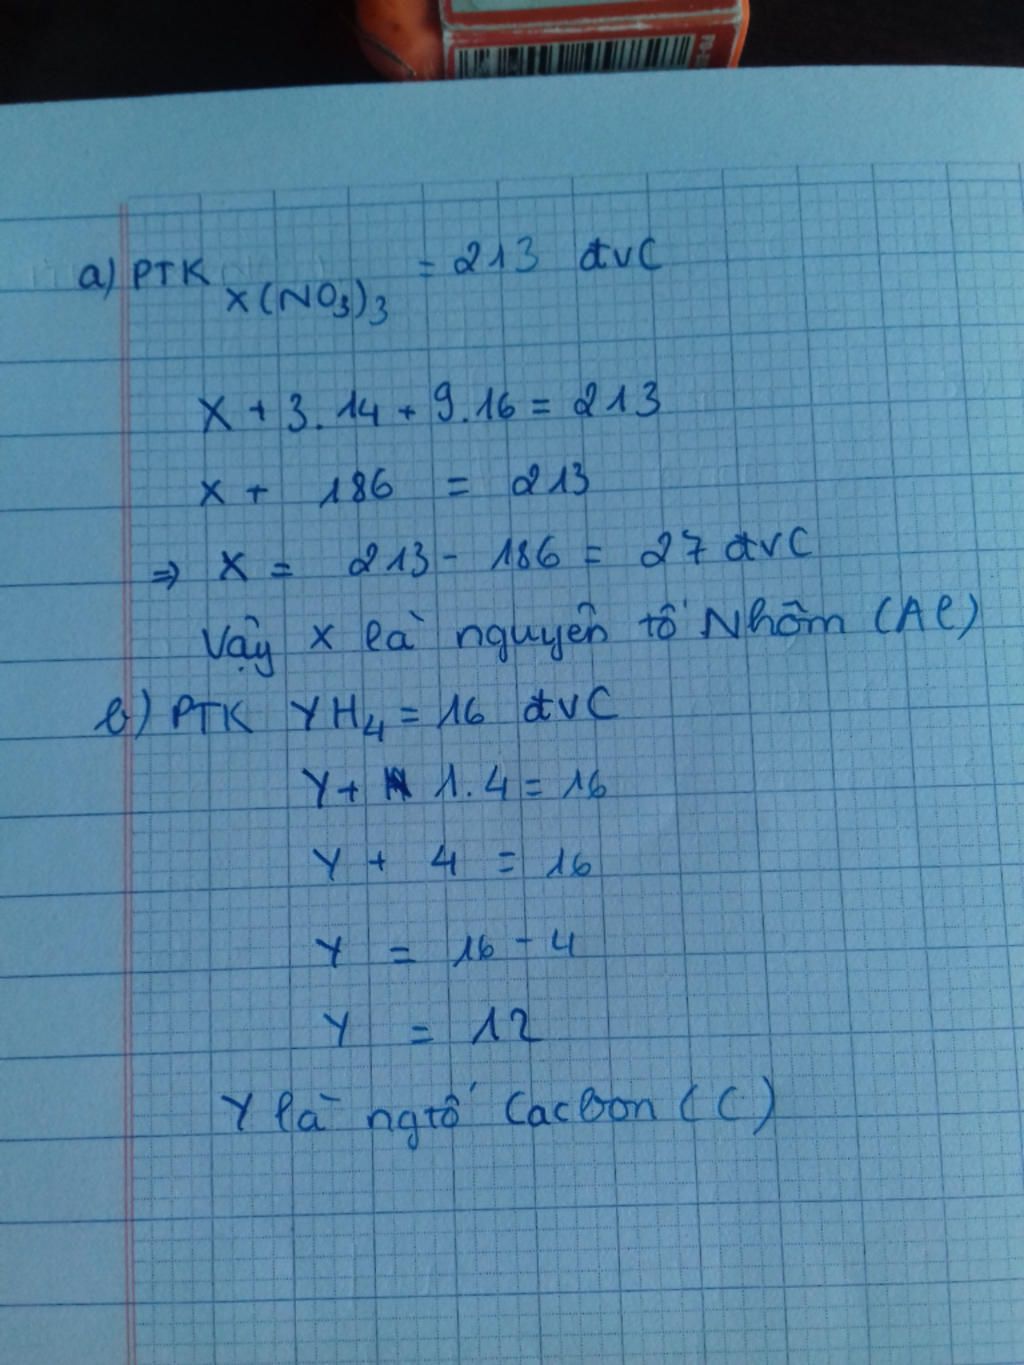 a) PTK X(NO3)3 = 213 đvC
X + 3.14 + 9.16 = 213
X + 186 = 213
⇒ X = 213 - 186 = 27 đvC
Vậy X là nguyên tố Nhôm (Al)
b) PTK YH4 = 16 đvC
Y + 1.4 = 16
Y + 4 = 16
Y = 16 - 4
Y = 12
Y là ngtố Cacbon (C)